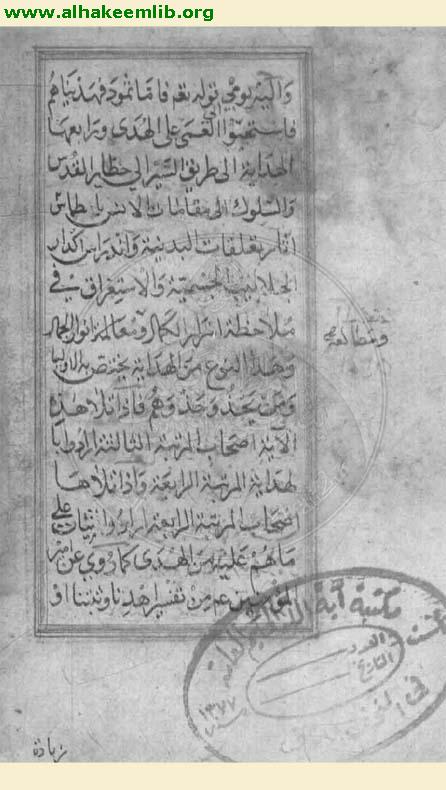 www.alhakeemlib.org
واليه يومي قوله تعه فاما ثمود فهديناهم
فاستحبوا العمى على الهدى ورابعها
الهداية الى طريق السير الى حظاير القدس
والسلوك الى مقامات الانس بانطماس
اثار تعلقات البدنية واندراس اكدار
الجلابيب الجسمية والاستغراق في
ملاحظة اسرار الكمال ومعالم انوار الجمال
ومطالعة
وهذا النوع من الهداية يختص به الاوليا
ومن يحذو حذوهم فاذا تلا هذه
الآية اصحاب المرتبة الثالثة ارادوا بها
لهداية المرتبة الرابعة واذا تلاها
اصحاب المرتبة الرابعة ارادوا الثبات على
ما هم عليه من الهدى كما روي عن امير
المؤمنين عم من تفسير اهدنا وثبتنا او
زيادة
مكتبة آية الله الحكيم العامة
العدد
التاريخ
١٣٧٧